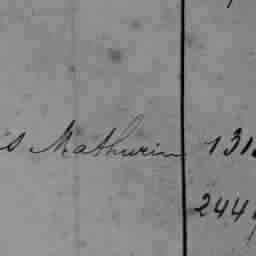 s Mathurin 131
244